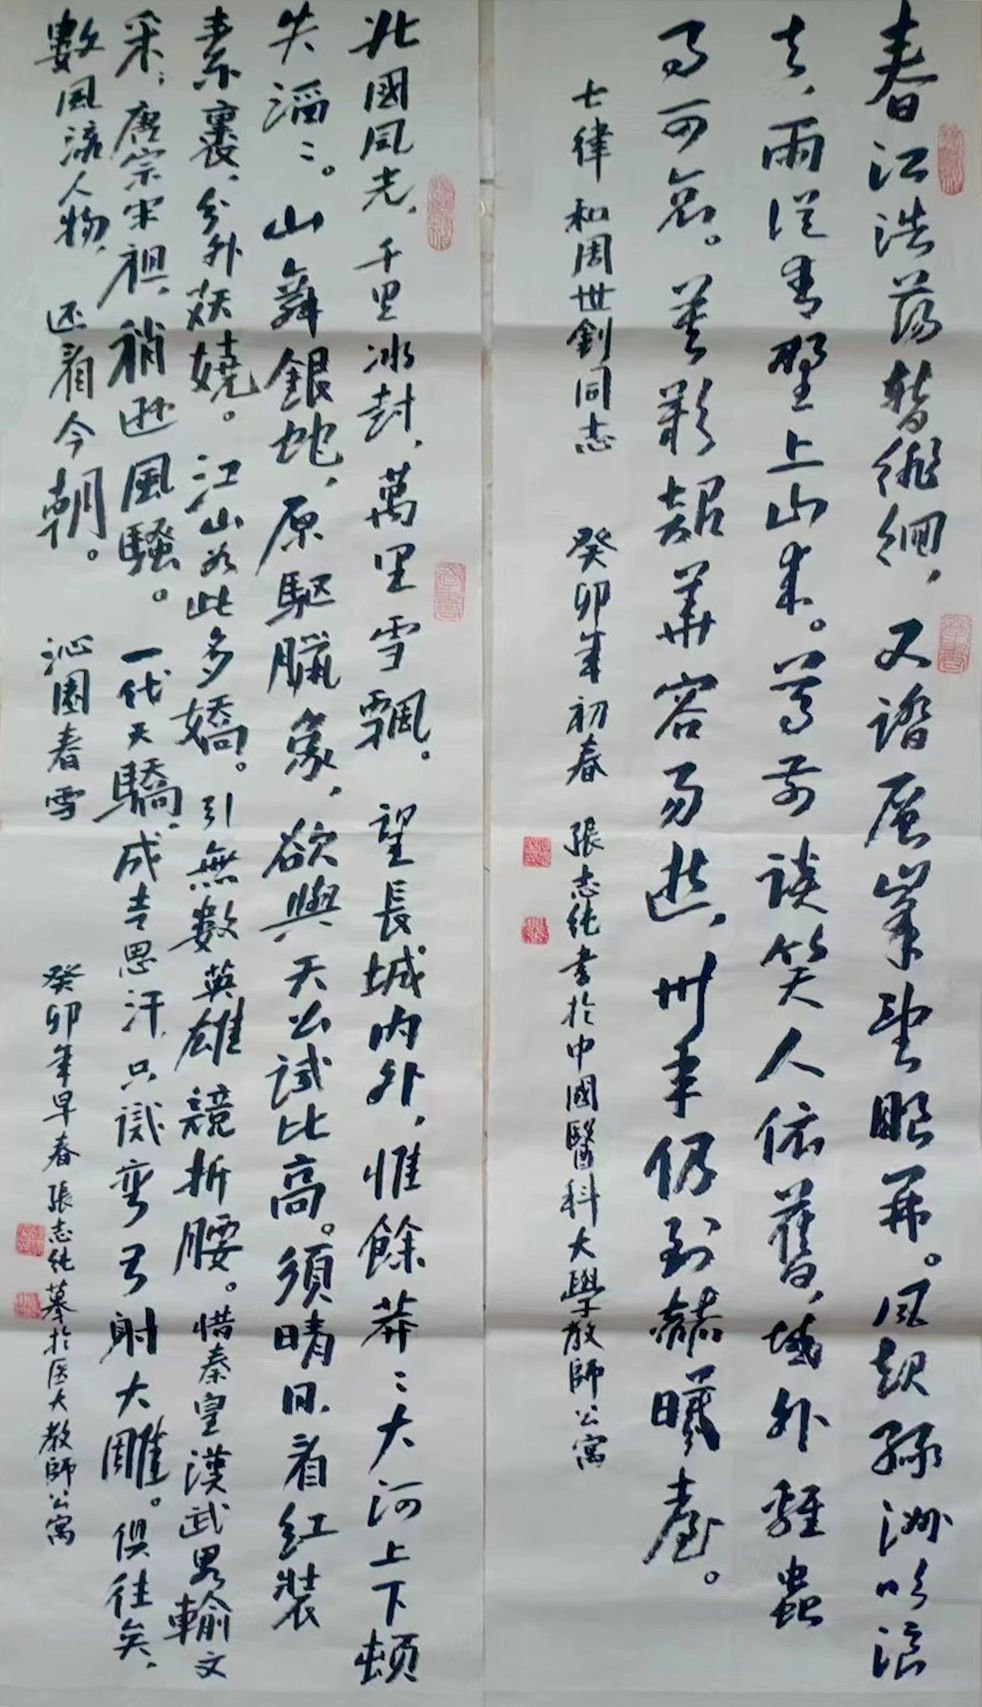 春江浩蕩暫徘徊，又踏層峯望眼開。風起綠洲吹浪
去，雨從青野上山來。尊前談笑人依舊，域外雞蟲
事可哀。莫歎韶華容易逝，卅年仍到赫曦臺。
七律 和周世釗同志 癸卯年初春 張志純書於中國醫科大學教師公寓
北國風光，千里冰封，萬里雪飄。望長城内外，惟餘莽〻大河上下頓
失滔〻。山舞銀蛇，原駆臘象，欲與天公試比高。須晴日，看紅裝
素裹，分外妖嬈。江山如此多嬌。引無數英雄競折腰。惜秦皇漢武畧輸文
采；唐宗宋祖，稍遜風騷。一代天驕，成吉思汗，只識弯弓射大雕。俱往矣，
數風流人物，还看今朝。 沁園春雪 癸卯年早春張志純摹於医大教師公寓